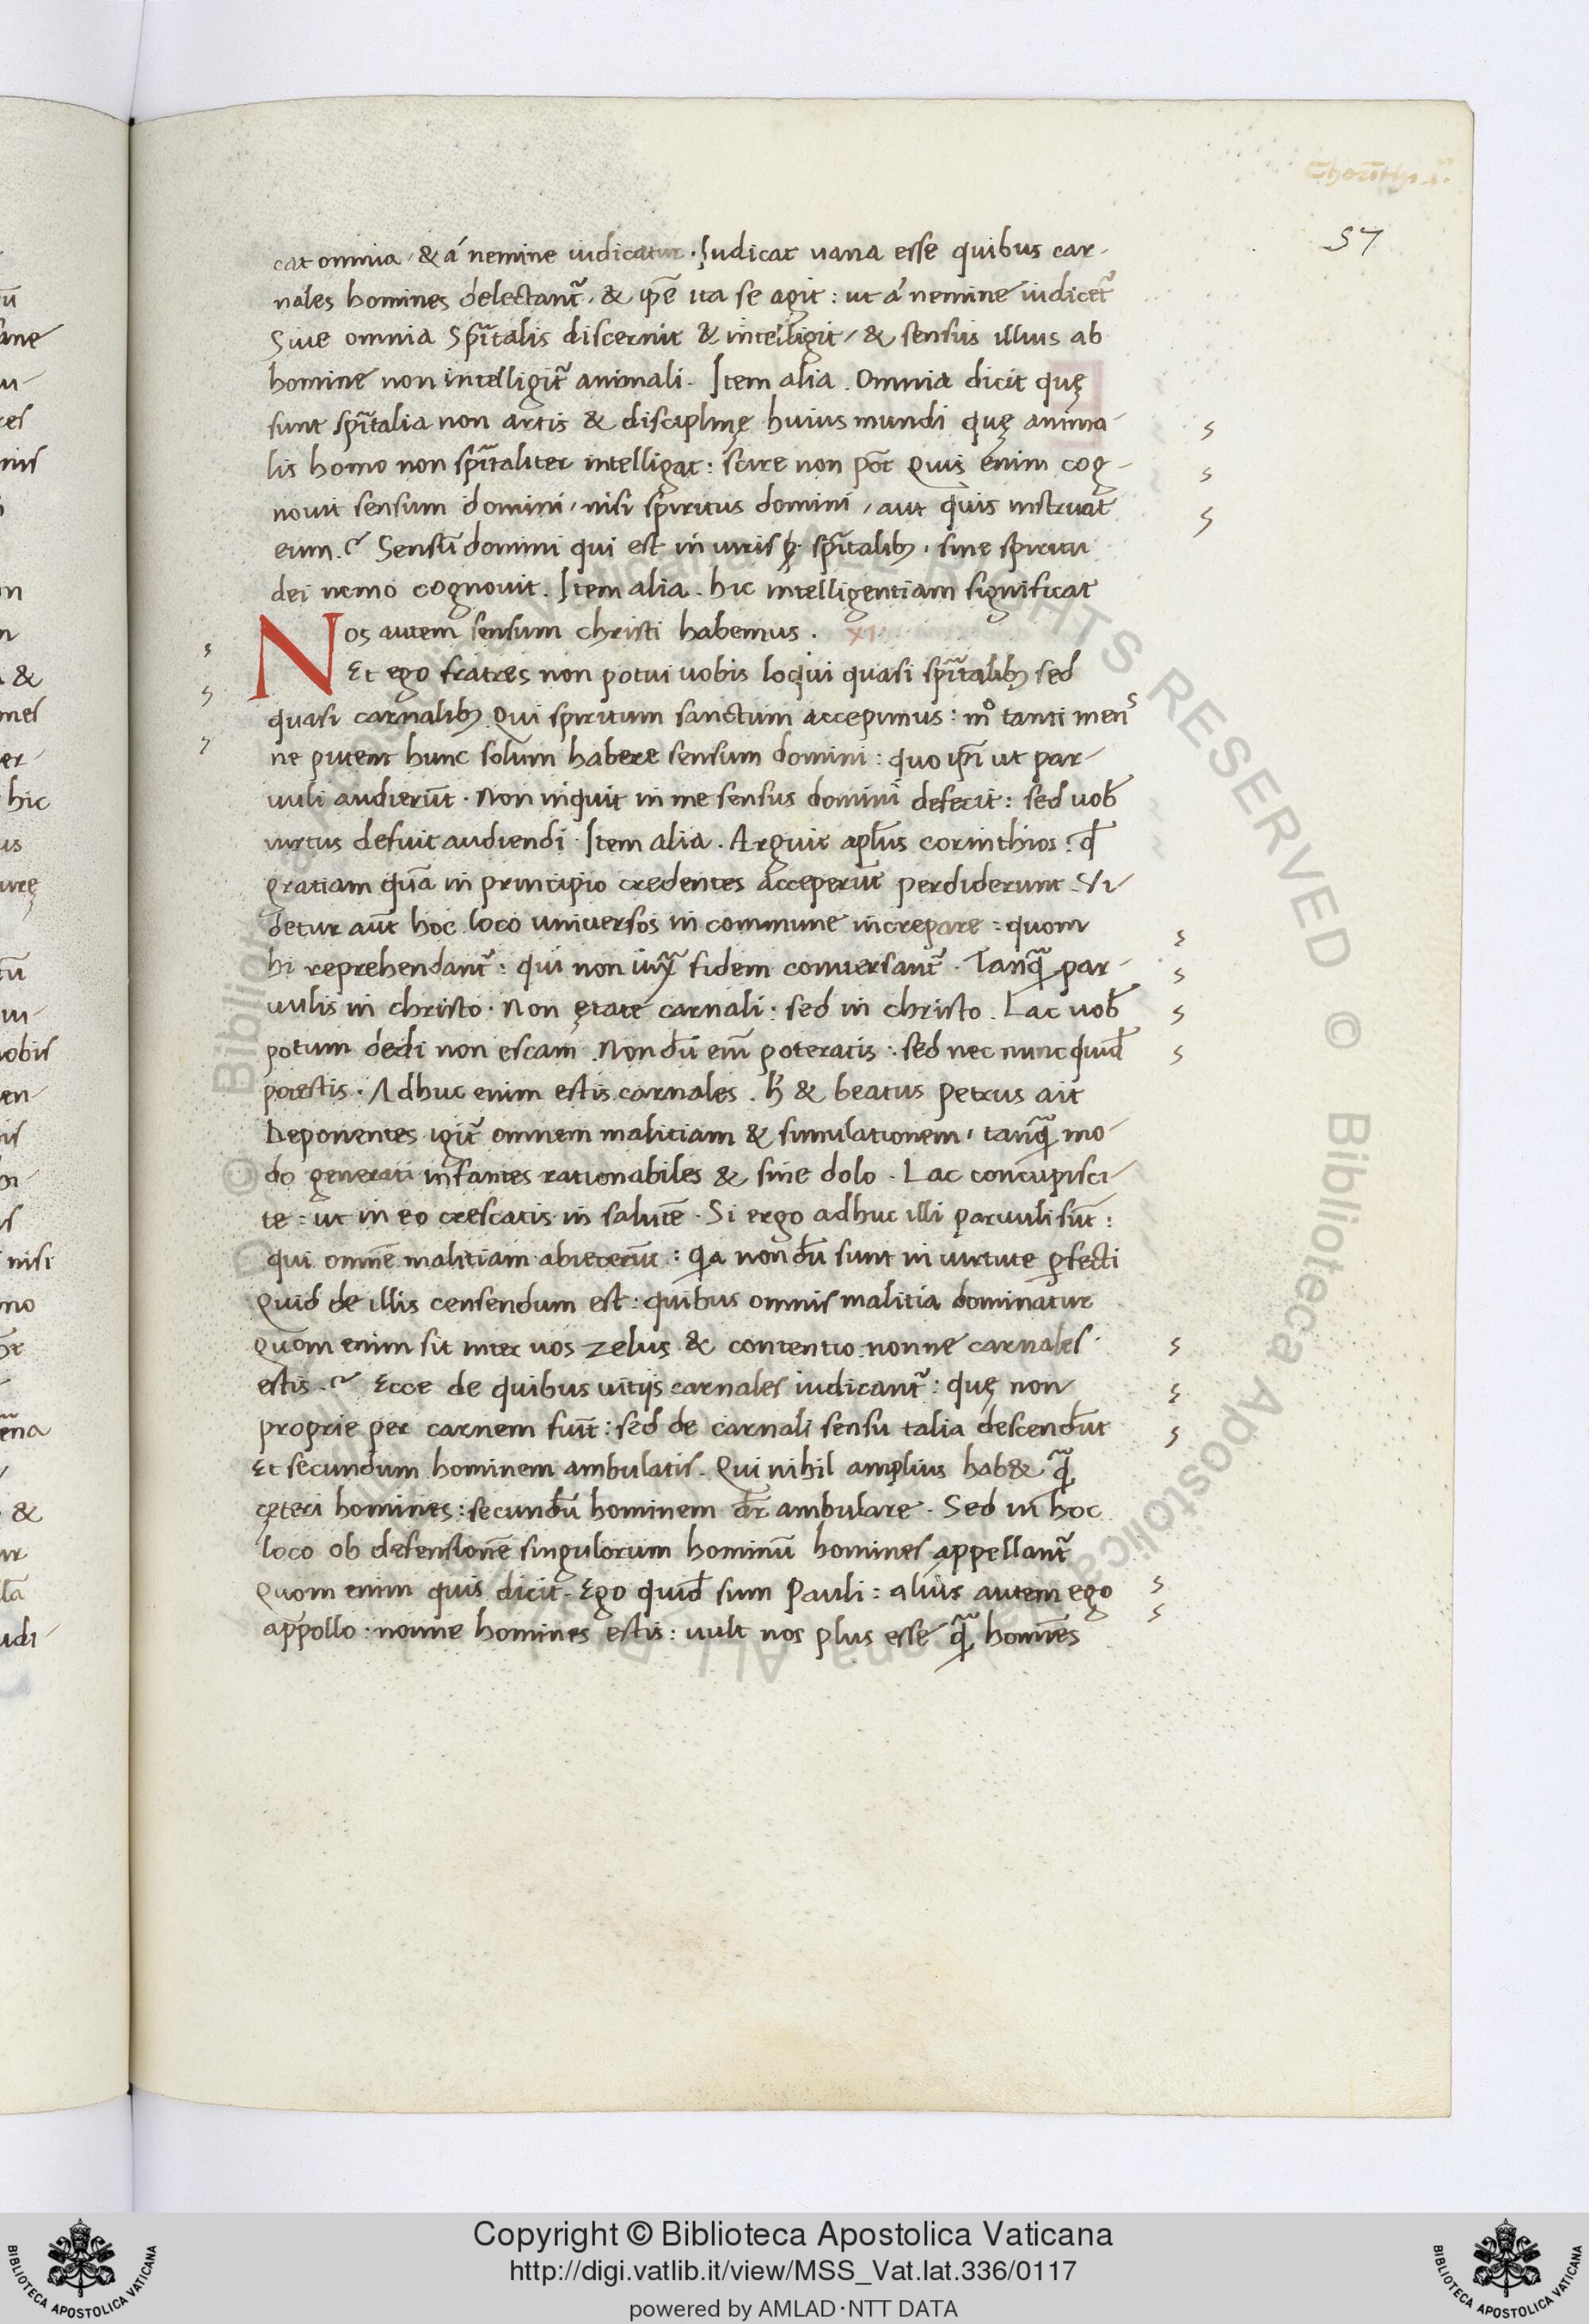 57
cat omnia / & á nemine iudicatur · Iudicat uana esse quibus car-
nales homines delectant̃ / & ip̄e ita se agit : ut á nemine iudicet̃
Siue omnia Sp̄italis discernit & intelligit / & sensus illius ab
homine non intelligit̃ animali . Item alia . Omnia dicit quę
sunt sp̄italia non artis & disciplinę huius mundi quę anima-
lis homo non sp̄italiter intelligat : scire non pōt Quis enim cog-
nouit sensum domini / nisi spiritus domini / aut quis instruat
eum . ? Sensū domini qui est in uiris sp̄italibꝫ . sine spiritu
dei nemo cognouit . Item alia . hic intelligentiam significat
Nos autem sensum christi habemus . XI
Et ego fratres non potui uobis loqui quasi sp̄italibꝫ sed
quasi carnalibꝫ Qui spiritum sanctum accepimus : mᵒ tanti menˢ
ne putent hunc solum habere sensum domini : quo ip̄i ut par-
uuli audierūt . Non inquit in me sensus domini defecit : sed uob̄
uirtus defuit audiendi . Item alia . Arguit apl̄us corinthios : qđ
gratiam quā in principio credentes acceperūt perdiderunt . Vi-
detur aūt hoc loco uniuersos in commune increpare : quom
hi reprehendant̃ : qui non iuxͣ fidem conuersant̃ . Tanq̃ par-
uulis in christo . Non ętate carnali : sed in christo . Lac uob̄
potum dedi non escam . Non dū eni͂ poteratis : sed nec nunc quid̄
potestis . Adhuc enim estis carnales . h̄ & beatus Petrus ait
Deponentes igit̃ omnem malitiam & simulationem / tanq̃ mo-
do generati infantes rationabiles & sine dolo . Lac concupisci-
te : ut in eo crescatis in salutē . Si ergo adhuc illi paruuli sūt :
qui omnē malitiam abiecerūt : qͥa non dū sunt in uirtute ꝑfecti
Quid de illis censendum est : quibus omnis malitia dominatur
Quom enim sit inter uos zelus & contentio nonne carnales
estis . ? Ecce de quibus uitijs carnales iudicant̃ : quę non
proprie per carnem fiūt : sed de carnali sensu talia descendūt
Et secundum hominem ambulatis . Qui nihil amplius hab& q̃
cęteri homines : secundū hominem dr̄ ambulare . Sed in hoc
loco ob defensionē singulorum hominū homines appellant̃
Quom enim quis dicit . Ego quid̄ sum Pauli : alius autem ego
appollo : nonne homines estis : uult nos plus esse q̃ homīes
Copyright © Biblioteca Apostolica Vaticana
http://digi.vatlib.it/view/MSS_Vat.lat.336/0117
powered by AMLAD·NTT DATA
BIBLIOTECA APOSTOLICA VATICANA
BIBLIOTECA APOSTOLICA VATICANA